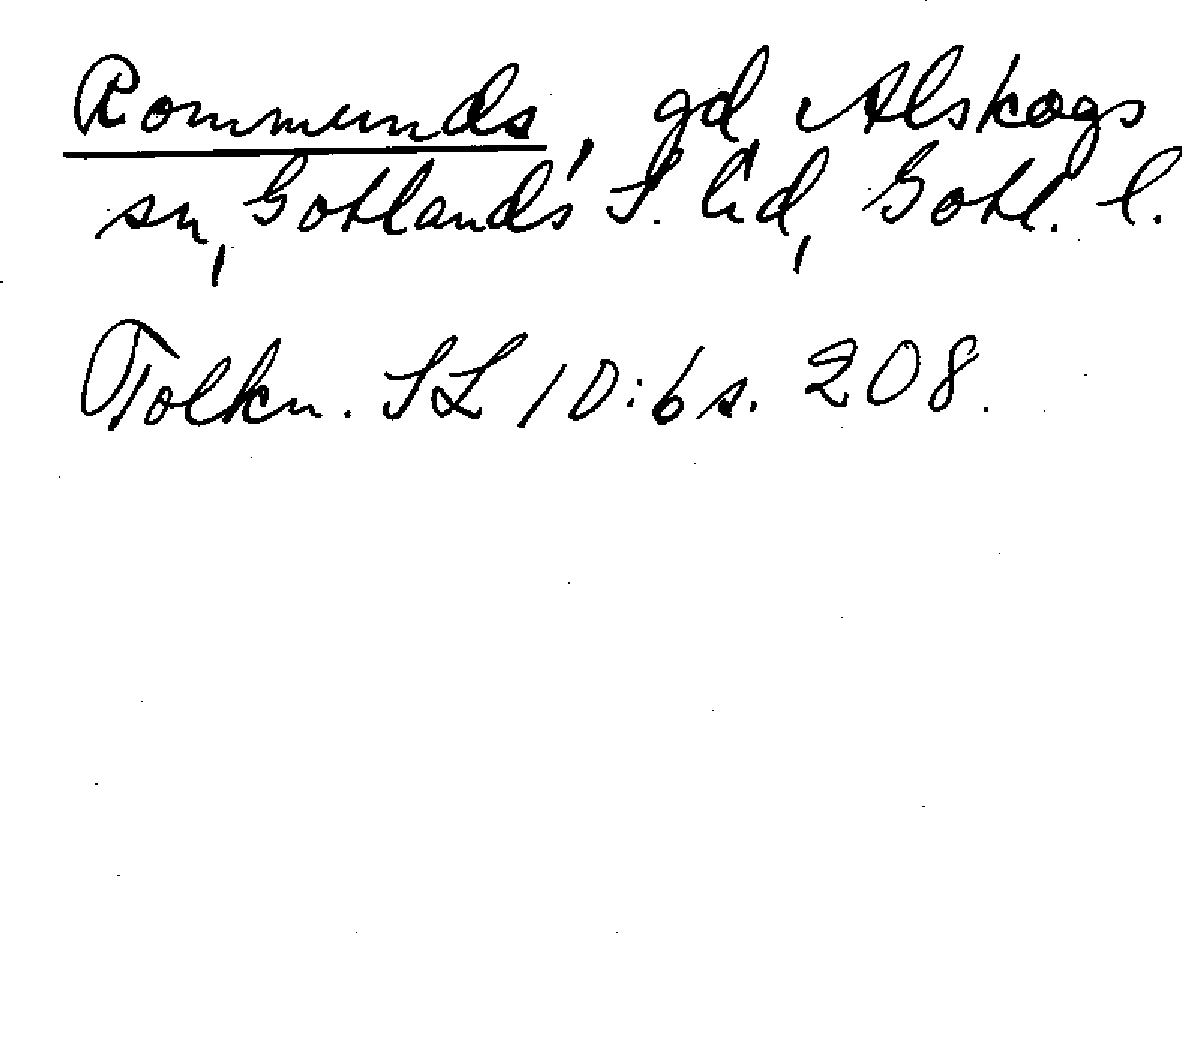 Rommunds, gd, Alskogs
sn, Gotlands S. hd, Gotl. l.
Tolkn. SL 10:6 s. 208.